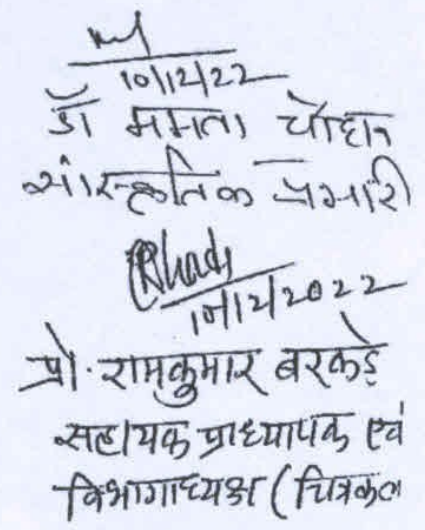 10/12/22
डॉ ममता चौहान
सांस्कृतिक प्रभारी
10/12/2022
प्रो. रामकुमार बरकड़े
सहायक प्राध्यापक एवं
विभागाध्यक्ष (चित्रकल